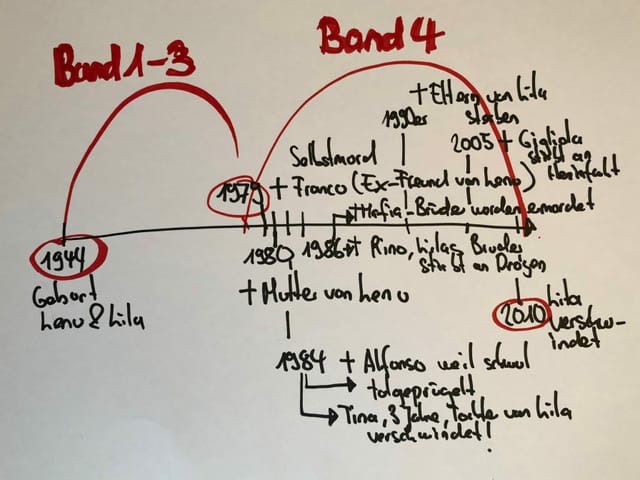 Band 1-3
Band 4
+ Eltern von Lila
sterben
1990er
2005 + Gigliola
stirbt an
Herzinfarkt
Selbstmord
1979 + Franco (Ex-Freund von Lenu)
+ Mafia-Brüder worden ermordet
1944
Geburt
Lenu & Lila
1980
1986 + Rino, Lilas Bruder
stirbt an Drogen
+ Mutter von Lenu
2010 Lila
verschw-
indet
1984 + Alfonso weil schwul
totgeprügelt
Tina, 3 Jahre, Tochter von Lila
verschwindet!